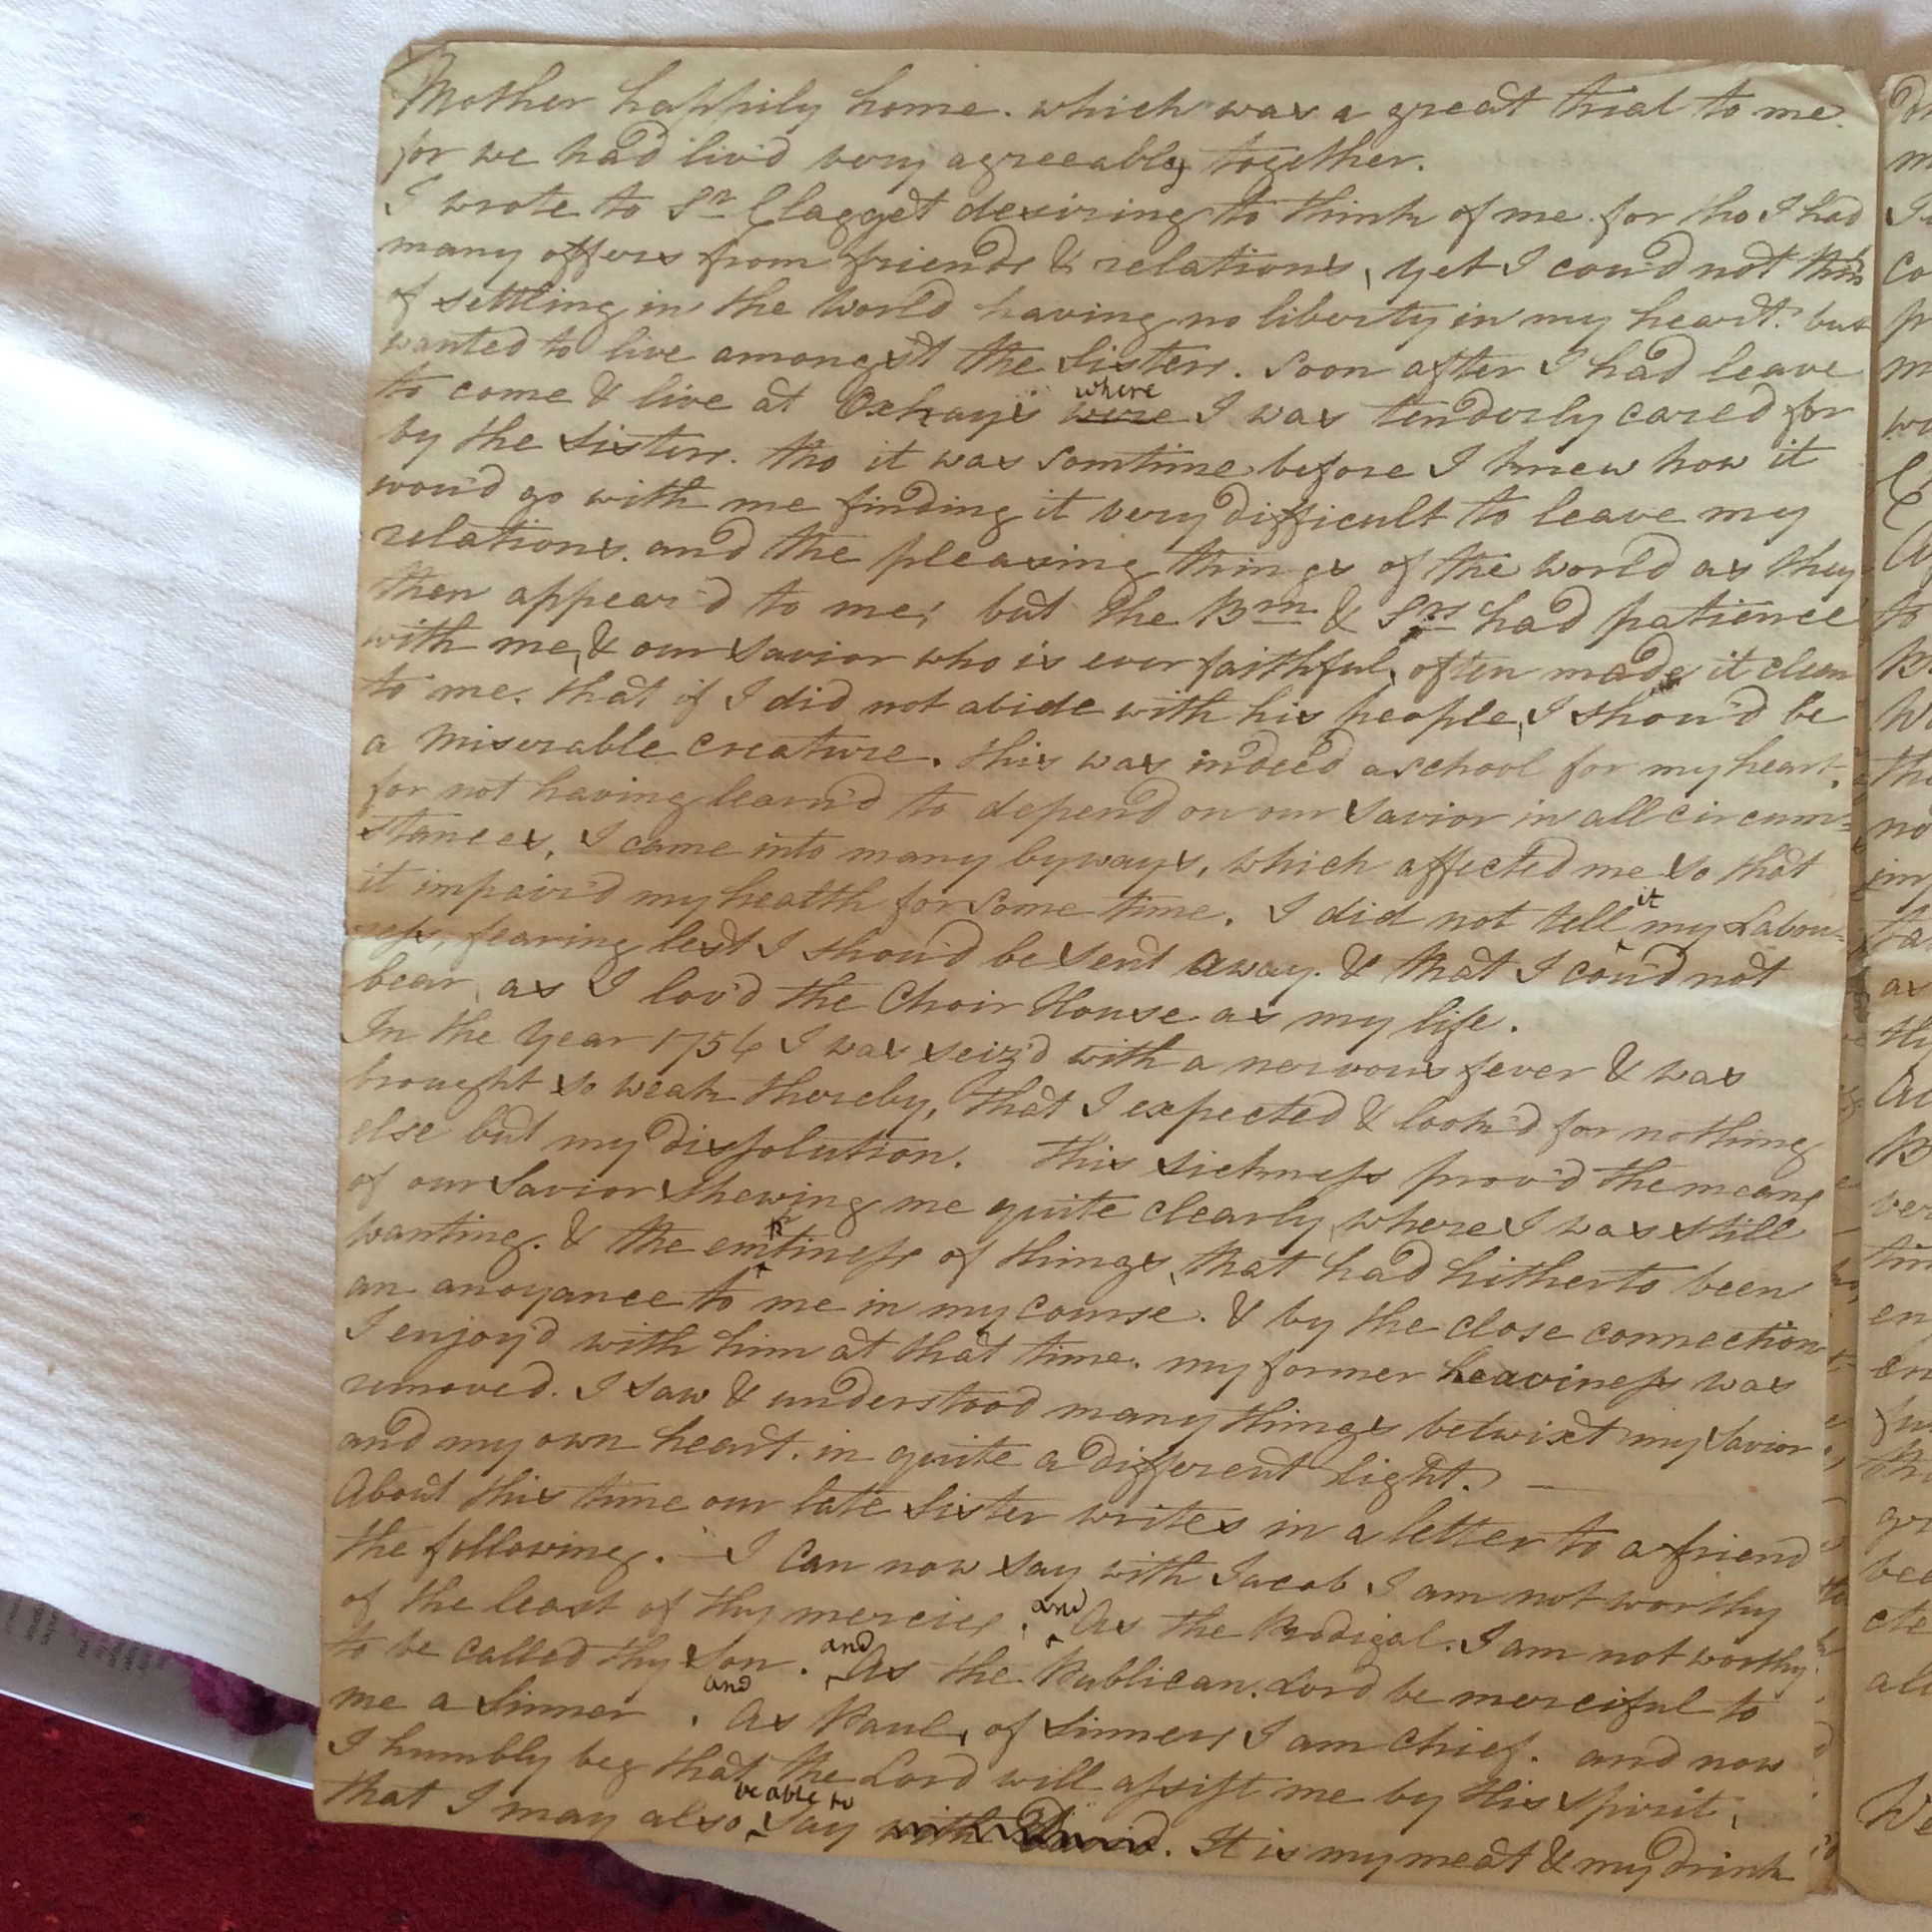 Mother happily home. which was a great trial to me.
for we had liv'd very agreeably together.
I wrote to Sr Clagget desiring to think of me. for tho I had
many offers from friends & relations, yet I cou'd not think
of settling in the World having no liberty in my heart. but
wanted to live amongst the Sisters. Soon after I had leave
to come & live at Oxhays were where I was tenderly cared for
by the Sisters. tho it was somtime before I knew how it
wou'd go with me finding it very difficult to leave my
relations. and the pleasing things of the world as they
then appear'd to me; but the Brn & Srs had patience
with me, & our Savior who is ever faithful, often made it clear
to me. that if I did not abide with his people, I shou'd be
a Miserable creature. this was indeed a school for my heart,
for not having learn'd to depend on our Savior in all circum=
stances, I came into many byways, which affected me so that
it impair'd my health for some time. I did not tell it my Labou=
ress, fearing lest I shou'd be sent away. & that I cou'd not
bear, as I lov'd the Choir House as my life.
In the Year 1756 I was seiz'd with a nervous fever & was
brought so weak thereby, that I expected & look'd for nothing
else but my dissolution. This sickness prov'd the means
of our Savior shewing me quite clearly, where I was still
wanting. & the emptiness of things, that had hitherto been
an anoyance to me in my course. & by the close connection
I enjoy'd with him at that time. my former heaviness was
removed. I saw & understood many things betwixt my Savior
and my own heart. in quite a different light. —
About this time our late Sister writes in a letter to a friend
the following. — I can now say with Jacob I am not worthy
of the least of thy mercies. and As the Prodigal. I am not worthy
to be called thy Son. and As the Publican. Lord be merciful to
me a Sinner and. As Paul, of Sinners I am Chief. and now
I humbly beg that the Lord will assist me by His Spirit,
that I may also be able to say with David. It is my meat & my drink